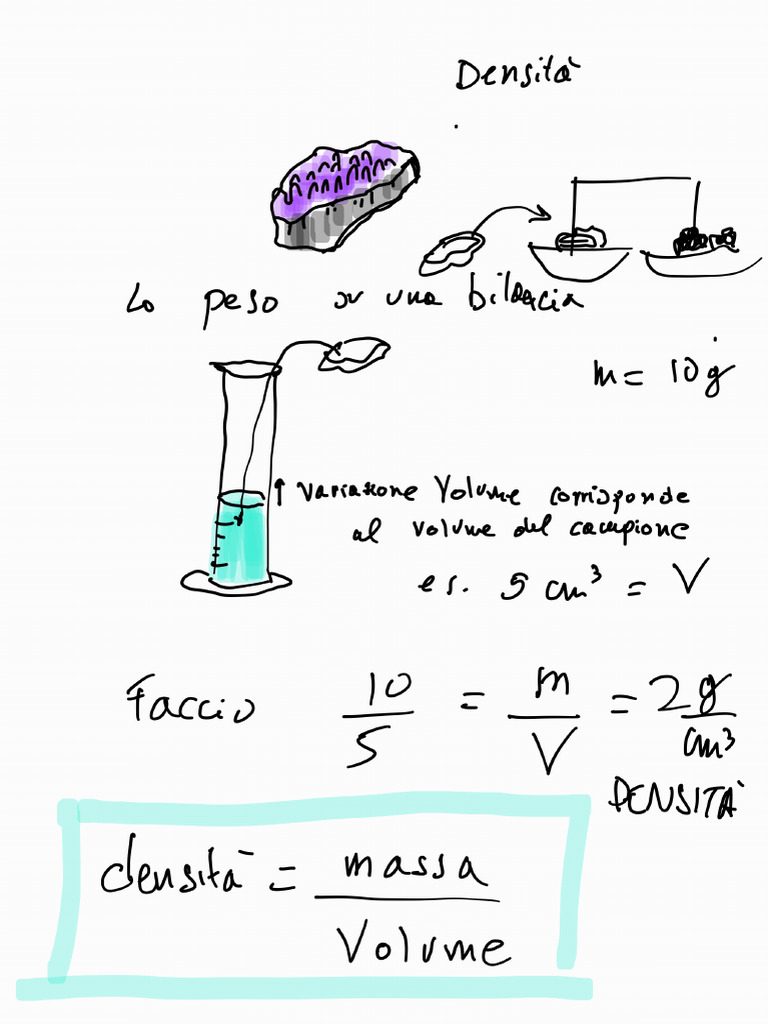 Densità
Lo peso su una bilancia
m = 10 g
↑ Variazione Volume corrisponde
al volume del campione
es. 5 cm³ = V
Faccio 10/5 = m/V = 2 g/cm³
DENSITÀ
densità = massa/Volume